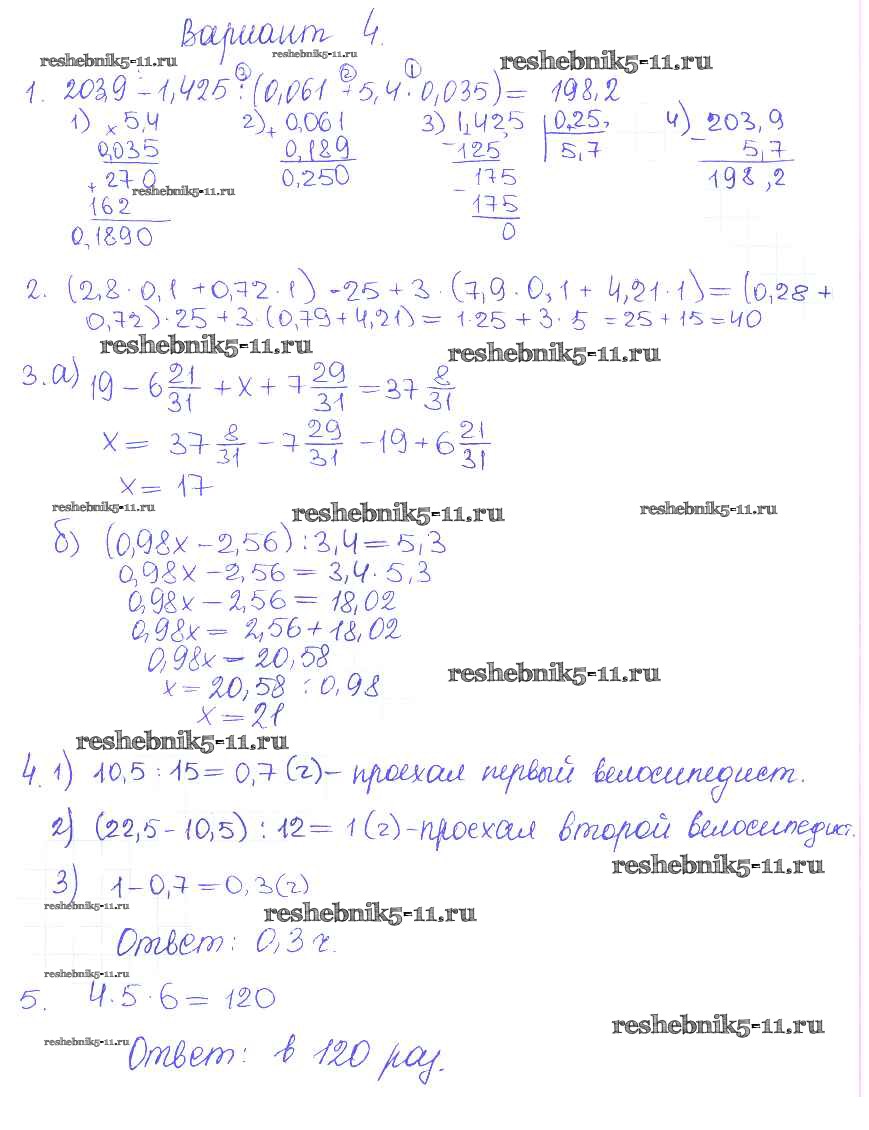 Вариант 4.
reshebnik5-11.ru reshebnik5-11.ru reshebnik5-11.ru
③ ② ①
1. 203,9 - 1,425 : (0,061 + 5,4 · 0,035) = 198,2
1) × 5,4 2) + 0,061 3) 1,425 | 0,25, 4) 203,9
0,035 0,189 - 125, 5,7 - 5,7
+ 270 0,250 175 198,2
reshebnik5-11.ru
162 - 175
0,1890 0
2. (2,8 · 0,1 + 0,72 · 1) · 25 + 3 · (7,9 · 0,1 + 4,21 · 1) = (0,28 +
0,72) · 25 + 3 · (0,79 + 4,21) = 1 · 25 + 3 · 5 = 25 + 15 = 40
reshebnik5-11.ru reshebnik5-11.ru
3. а) 19 - 6 21/31 + x + 7 29/31 = 37 8/31
x = 37 8/31 - 7 29/31 - 19 + 6 21/31
x = 17
reshebnik5-11.ru reshebnik5-11.ru reshebnik5-11.ru
б) (0,98x - 2,56) : 3,4 = 5,3
0,98x - 2,56 = 3,4 · 5,3
0,98x - 2,56 = 18,02
0,98x = 2,56 + 18,02
0,98x = 20,58
reshebnik5-11.ru
x = 20,58 : 0,98
x = 21
reshebnik5-11.ru
4. 1) 10,5 : 15 = 0,7 (ч) - проехал первый велосипедист.
2) (22,5 - 10,5) : 12 = 1 (ч) - проехал второй велосипедист.
reshebnik5-11.ru
3) 1 - 0,7 = 0,3 (ч)
reshebnik5-11.ru reshebnik5-11.ru
Ответ: 0,3 ч.
reshebnik5-11.ru
5. 4 · 5 · 6 = 120
reshebnik5-11.ru
reshebnik5-11.ru
Ответ: в 120 раз.